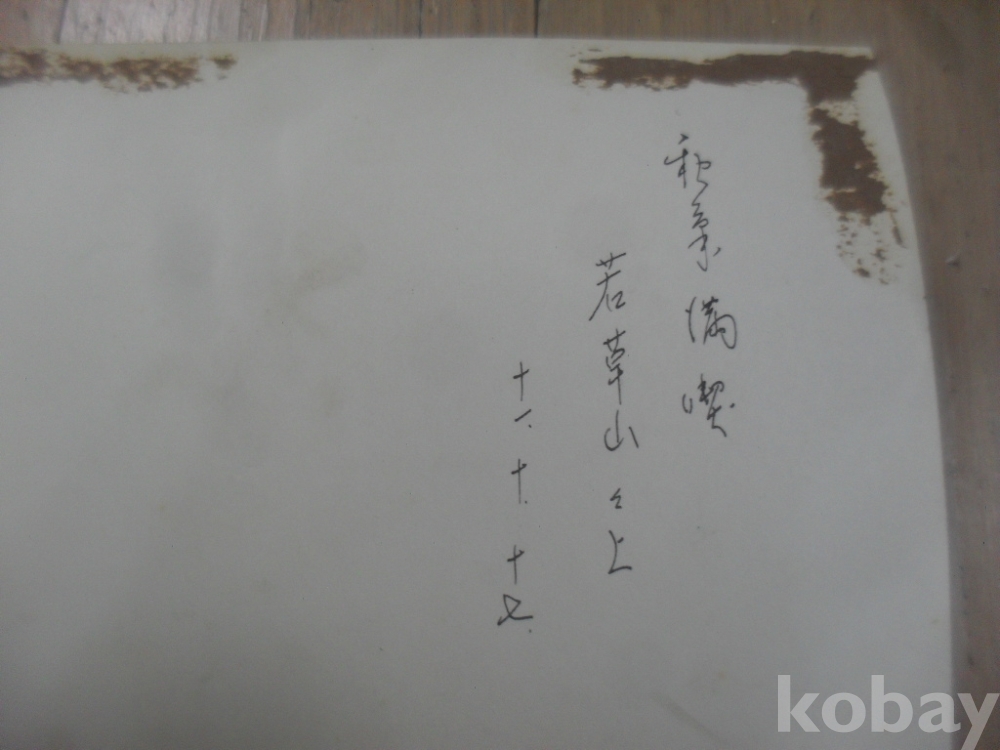 秋景満喫
若草山々上
十一、十、十七、
kobay